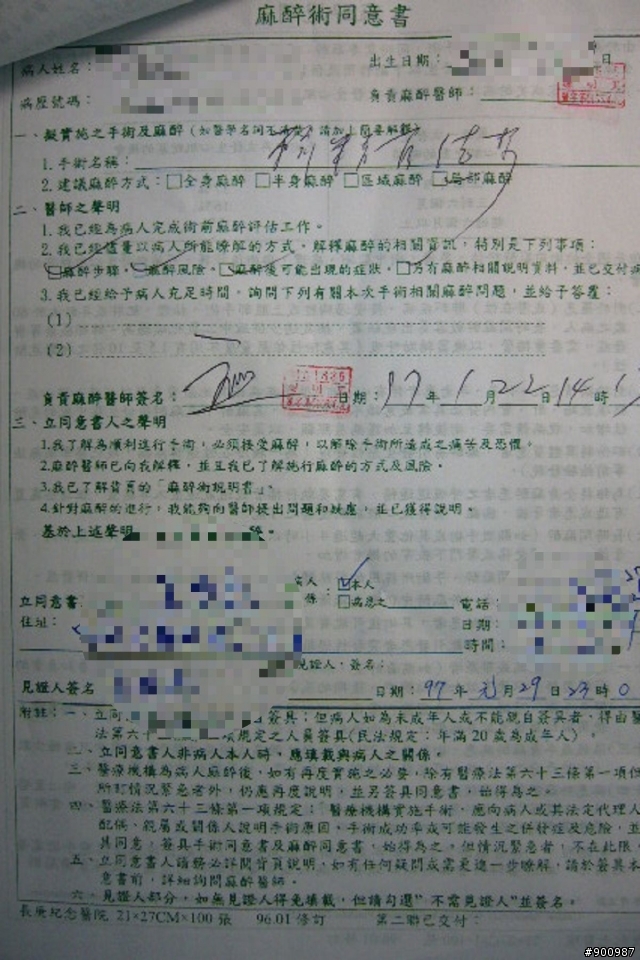 麻醉術同意書
病人姓名：
出生日期： 日
病歷號碼：
負責麻醉醫師：
一、擬實施之手術及麻醉（如醫學名詞不清楚，請加上簡要解釋）
1.手術名稱：
2.建議麻醉方式：□全身麻醉 □半身麻醉 □區域麻醉 □局部麻醉
二、醫師之聲明
1.我已經為病人完成術前麻醉評估工作。
2.我已經儘量以病人所能瞭解的方式，解釋麻醉的相關資訊，特別是下列事項：
□麻醉步驟。□麻醉風險。□麻醉後可能出現的症狀。□另有麻醉相關說明資料，並已交付病
3.我已經給予病人充足時間，詢問下列有關本次手術相關麻醉問題，並給予答覆：
(1)
(2)
負責麻醉醫師簽名： 日期：97年1月22日14時
三、立同意書人之聲明
1.我了解為順利進行手術，必須接受麻醉，以解除手術所造成之痛苦及恐懼。
2.麻醉醫師已向我解釋，並且我已了解施行麻醉的方式及風險。
3.我已了解背頁的「麻醉術說明書」。
4.針對麻醉的進行，我能夠向醫師提出問題和疑慮，並已獲得說明。
基於上述聲明
病人 ☑本人
係：□病患之
立同意書
電話：
住址：
日期：
時間：
見證人，簽名：
見證人簽名
日期：97年元月29日23時0
附註：一、立同 簽具；但病人如為未成年人或不能親自簽具者，得由醫
法第六十三 項規定之人員簽具(民法規定：年滿20歲為成年人)。
二、立同意書人非病人本人時，應填載與病人之關係。
三、醫療機構為病人麻醉後，如有再度實施之必要，除有醫療法第六十三條第一項但
所訂情況緊急者外，仍應再度說明，並另簽具同意書，始得為之。
四、醫療法第六十三條第一項規定：「醫療機構實施手術，應向病人或其法定代理人
配偶、親屬或關係人說明手術原因、手術成功率或可能發生之併發症及危險，並
其同意，簽具手術同意書及麻醉同意書，始得為之。但情況緊急者，不在此限。
五、立同意書人請務必詳閱背頁說明，如有任何疑問或需更進一步瞭解，請於簽具本
意書前，詳細詢問麻醉醫師。
六、見證人部分，如無見證人得免填載，但請勾選"不需見證人"並簽名。
長庚紀念醫院 21×27CM×100張 96.01修訂 第二聯已交付：
#900987